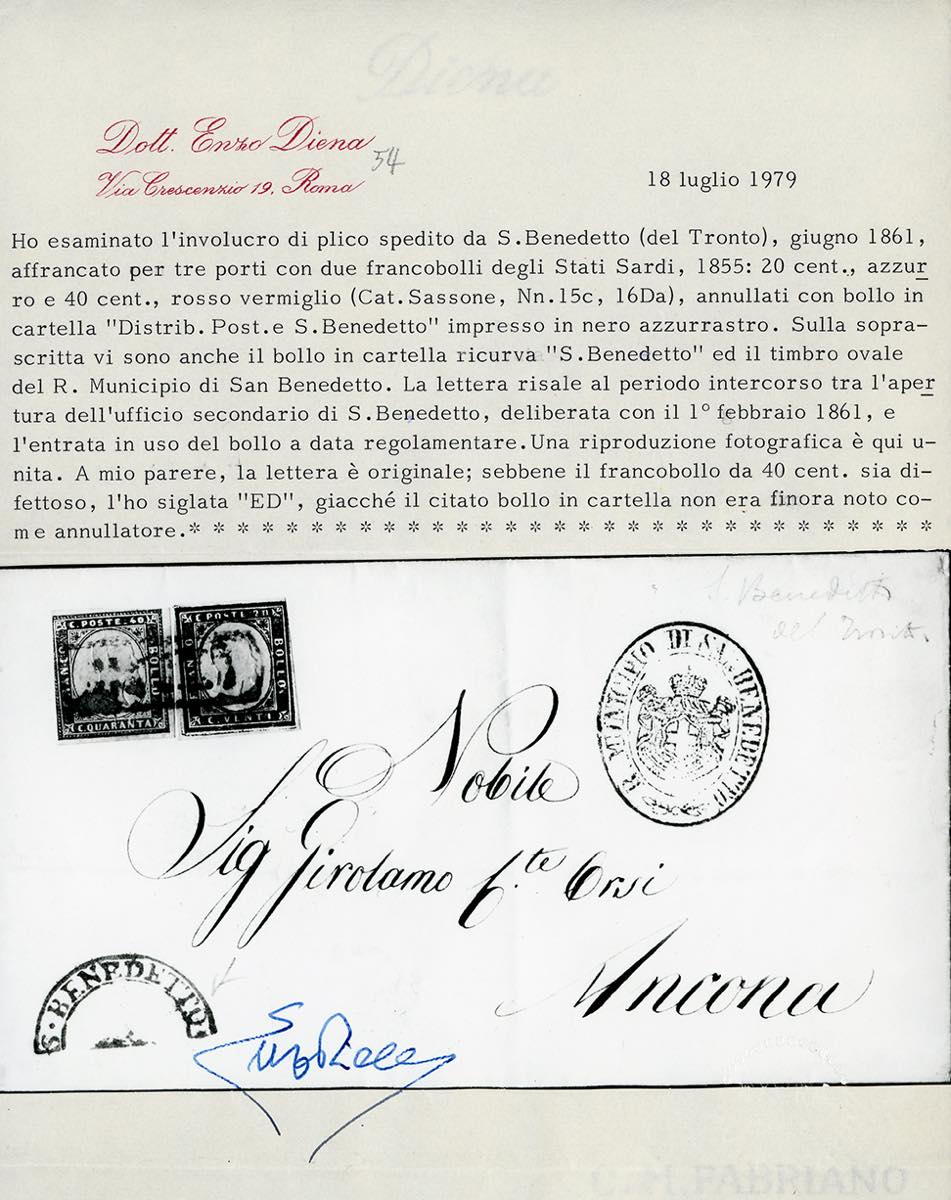 Diena
Dott. Enzo Diena
54
Via Crescenzio 19, Roma
18 luglio 1979
Ho esaminato l'involucro di plico spedito da S.Benedetto (del Tronto), giugno 1861,
affrancato per tre porti con due francobolli degli Stati Sardi, 1855: 20 cent., azzur
ro e 40 cent., rosso vermiglio (Cat.Sassone, Nn.15c, 16Da), annullati con bollo in
cartella "Distrib. Post.e S.Benedetto" impresso in nero azzurrastro. Sulla sopra-
scritta vi sono anche il bollo in cartella ricurva "S.Benedetto" ed il timbro ovale
del R. Municipio di San Benedetto. La lettera risale al periodo intercorso tra l'aper
tura dell'ufficio secondario di S.Benedetto, deliberata con il 1° febbraio 1861, e
l'entrata in uso del bollo a data regolamentare.Una riproduzione fotografica è qui u-
nita. A mio parere, la lettera è originale; sebbene il francobollo da 40 cent. sia di-
fettoso, l'ho siglata "ED", giacché il citato bollo in cartella non era finora noto co-
me annullatore.* * * * * * * * * * * * * * * * * * * * * * * * * * *
S. Benedetto
del Tronto
C. POSTE. 40
BOLLO
C. QUARANTA
C. POSTE. 20
BOLLO
C. VENTI
R. MUNICIPIO DI SAN BENEDETTO
Nobile
Sig Girolamo C.te Orsi
Ancona
S. BENEDETTO
Enzo Diena
C. M. FABRIANO